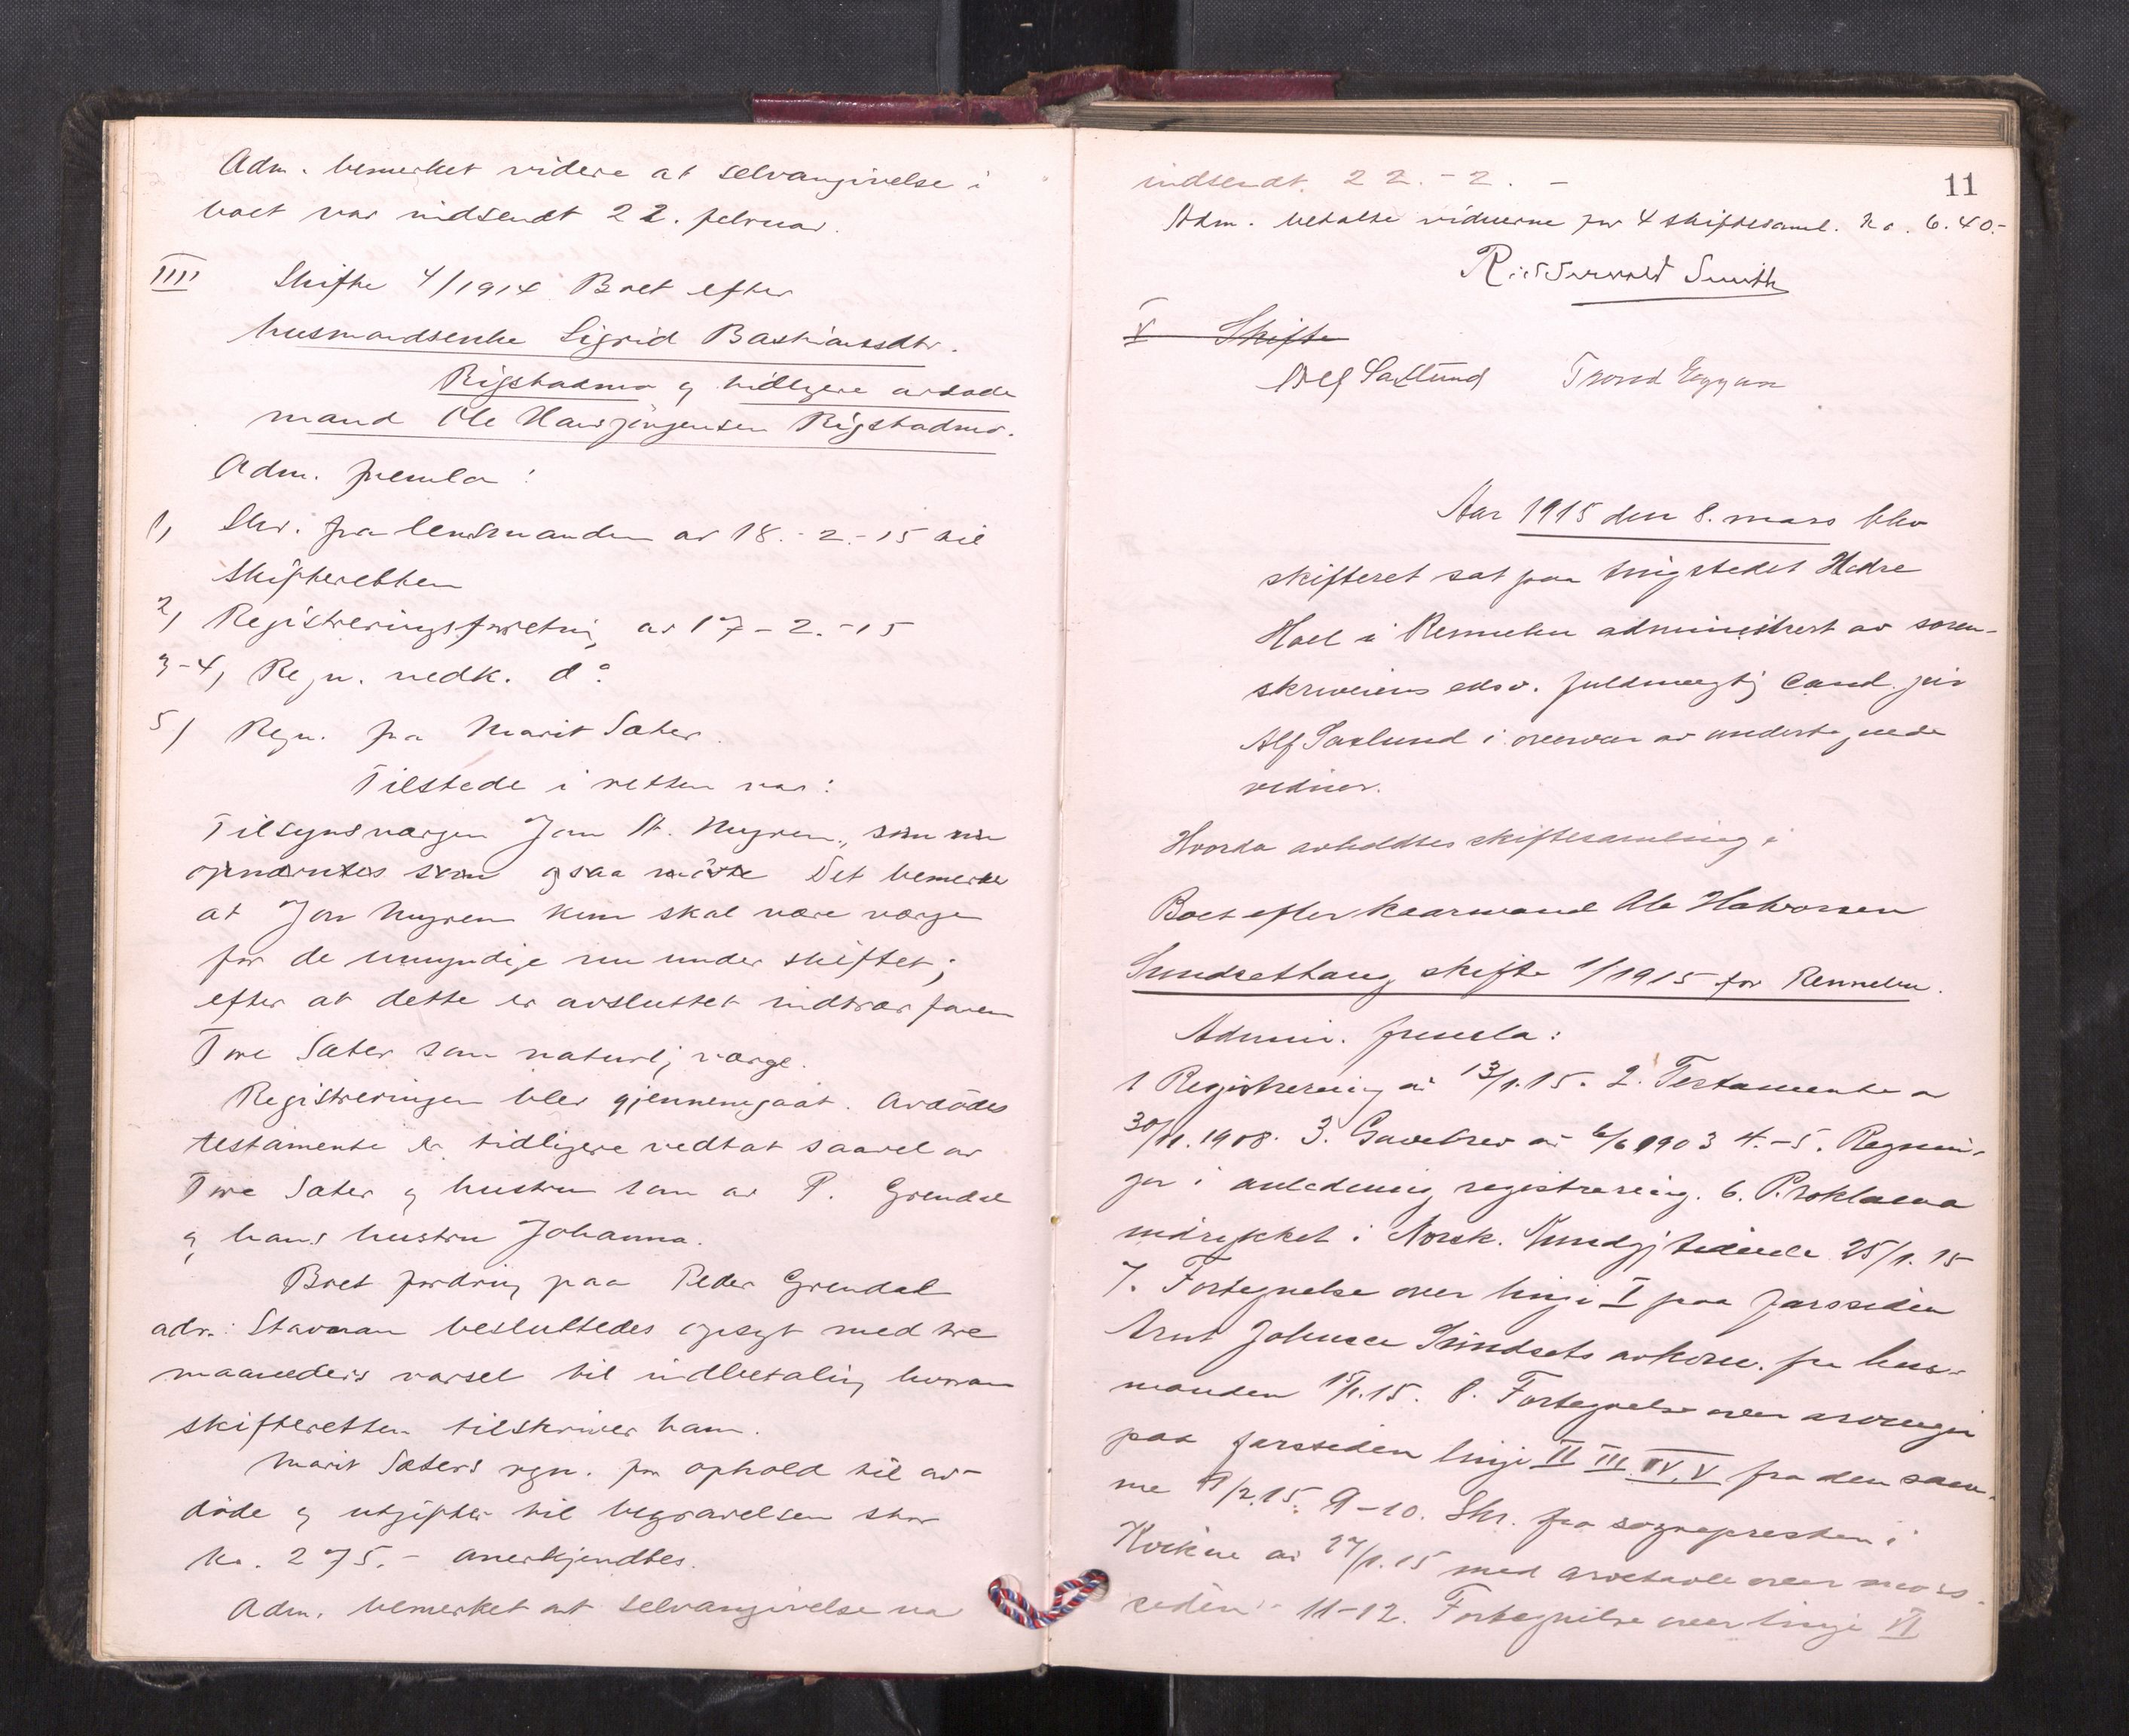 Adm. bemerket videre at selvangivelse i
boet var indsendt 22. februar.
IIII Skifte 4/1914 Boet efter
husmandsenke Sigrid Bastiansdtr.
Rigstadmo og tidligere avdøde
mand Ole Hansjørgensen Rigstadmo.
Adm. fremla:
1, Skr. fra lensmanden av 18.-2.-15 til
skifteretten
2, Registreringsforretning av 17-2.-15
3-4, Regn. vedk. do.
5) Regn. fra Marit Sæter.
Tilstede i retten var:
Tilsynsværgen Jon St. Nygren, som nu
opnævntes som ogsaa møtte Det bemerkes
at Jon Nygren kun skal være værge
for de umyndige nu under skiftet;
efter at dette er avsluttet indtrær faren
Tore Sæter som naturlig værge.
Registreringen blev gjennemgaat. Avdødes
testamente er tidligere vedtat saavel av
Tore Sæter og hustru som av P. Grendal
og hans hustru Johanna.
Boets fordring paa Peder Grendal
adr.: Stavnan besluttedes opsagt med tre
maaneders varsel til indbetaling hvorom
skifteretten tilskriver ham.
Marit Sæters regn. for ophold til av-
døde og utgifter til begravelsen stor
kr. 275.- anerkjendtes.
Adm. bemerket at selvangivelse var
11
indsendt 22.-2.-
Adm. betalte vidnerne for 4 skiftesaml. kr. 6.40.-
Ridderwold Smith
V Skifte
Alf Saxlund Trond Eggan
Aar 1915 den 8. mars blev
skifteret sat paa tingstedet Nedre
Hoel i Rennebu administrert av soren-
skriverens edsv. fuldmægtig cand. jur
Alf Saxlund i overvær av undertegnede
vidner.
Hvorda avholdtes skiftesamling i
Boet efter kaarmand Ole Halvorsen
Sundsethaug skifte 1/1915 for Rennebu.
Admin. fremla:
1 Registrering av 13/1.15. 2. Testamente av
30/11.1908. 3. Gavebrev av 6/6 1903 4.-5. Regnin-
ger i anledning registrering. 6. Proklama
indrykket i Norsk. Kundgj tidende 25/1.15
7. Fortegnelse over linje I paa farssiden
Arnt Johnsen Sundsets avkom. fra lens-
manden 15/1.15. 8. Fortegnelse over arvinger
paa farssiden linje II III IV. V fra den sam-
me 9/2.15. 9-10. Skr. fra sognepresten i
Kvikne av 27/1.15 med arvetavle over mors-
siden. 11-12. Fortegnelse over linje VI